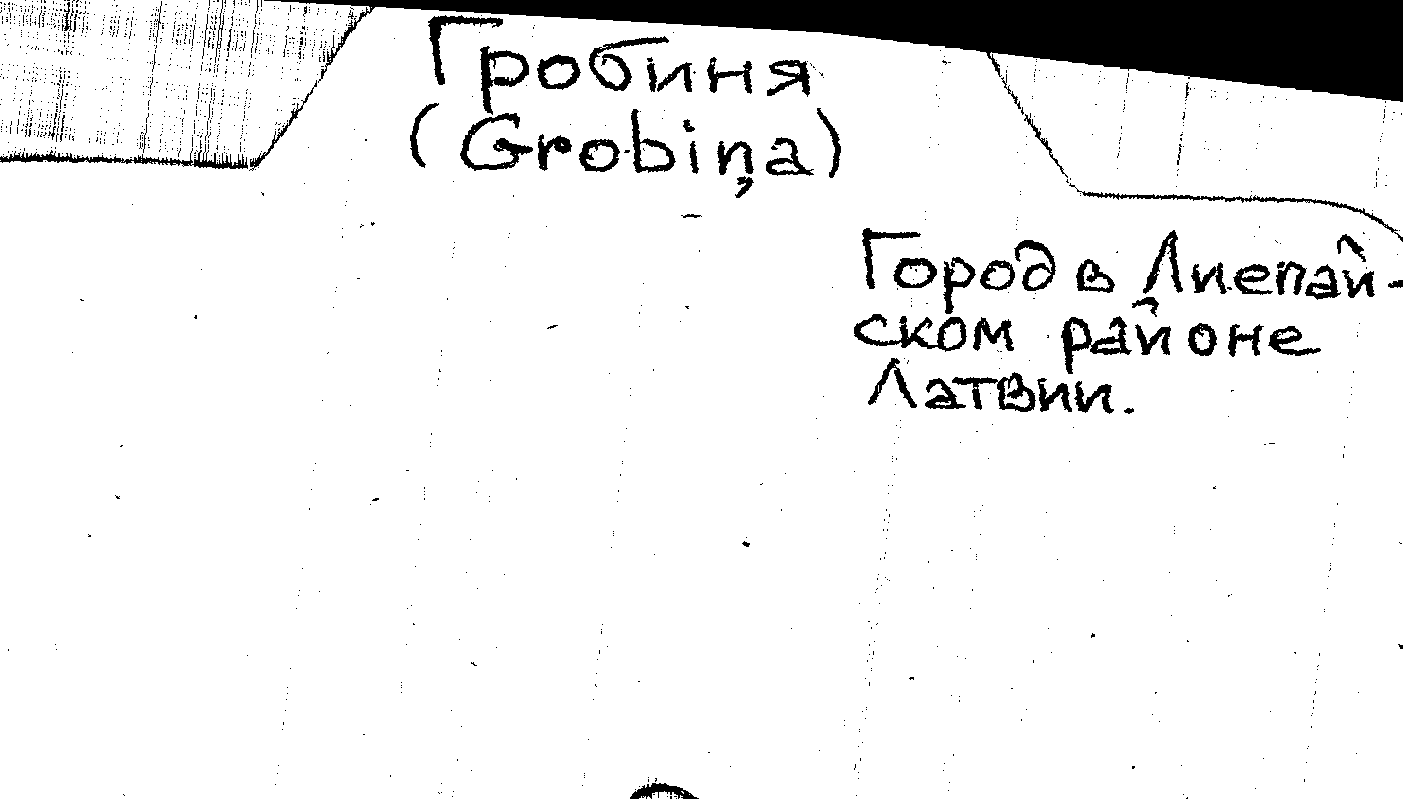 Гробиня
(Grobiņa)
Город в Лиепай-
ском районе
Латвии.